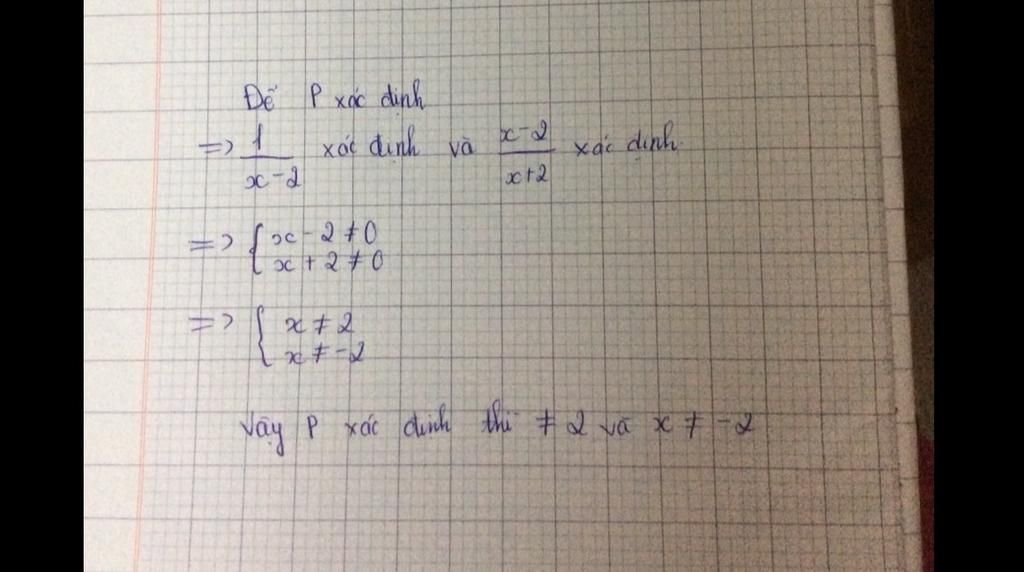 Để P xác định
=> 1/(x-2) xác định và (x-2)/(x+2) xác định
=> { x - 2 ≠ 0
x + 2 ≠ 0
=> { x ≠ 2
x ≠ -2
Vậy P xác định thì ≠ 2 và x ≠ -2